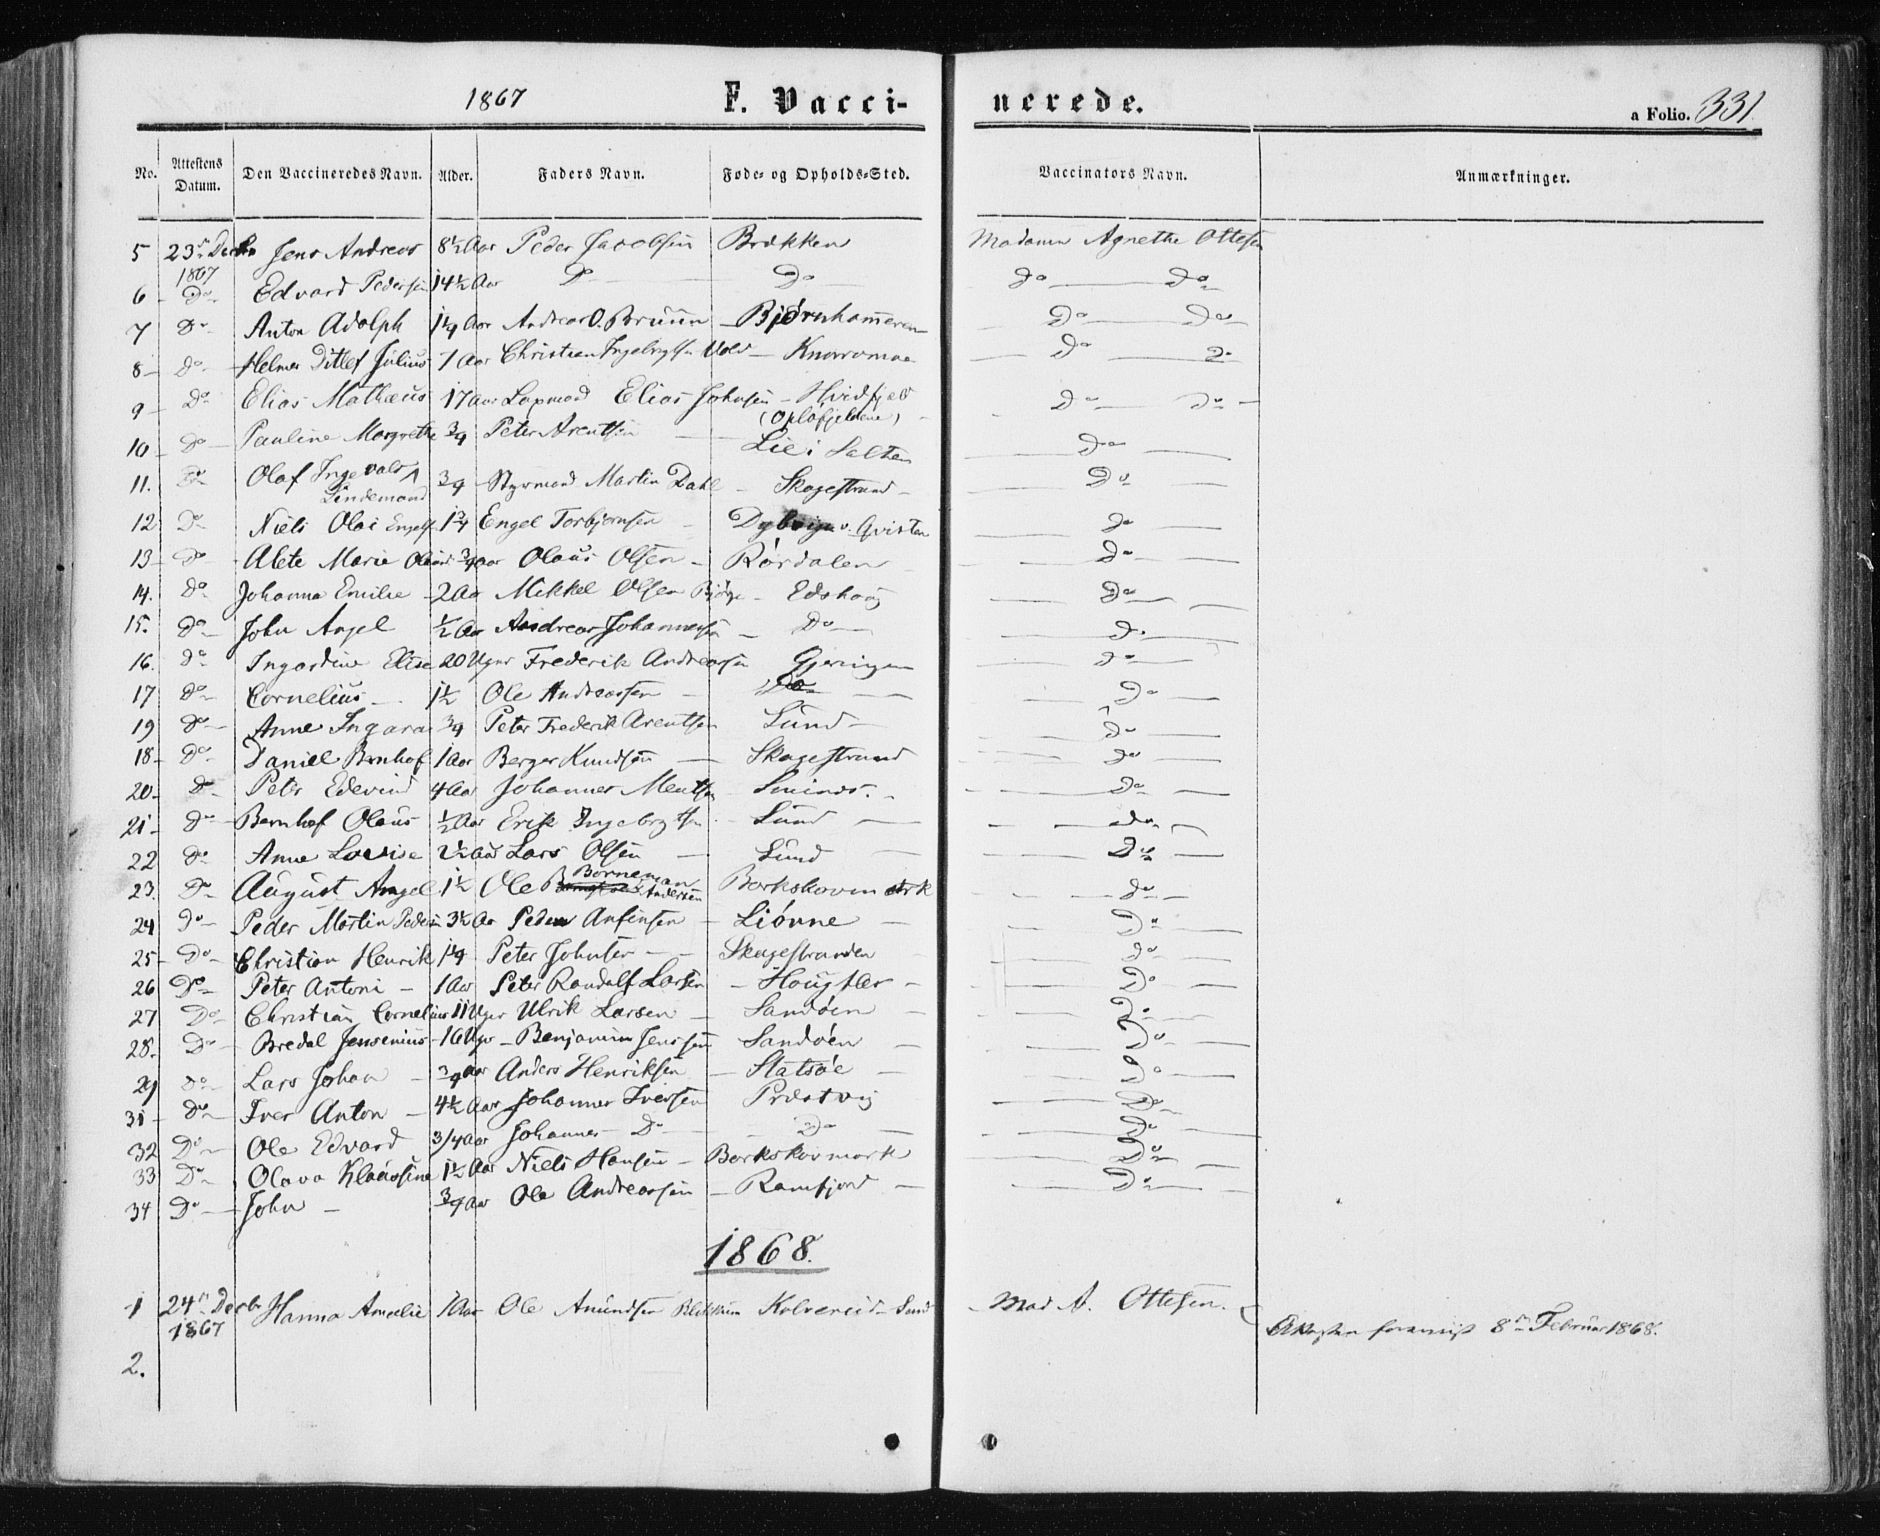 1867 F. Vacci- nerede. a Folio. 331.
No. Attestens Datum. Den Vaccineredes Navn. Alder. Faders Navn. Føde- og Opholds-Sted. Vaccinators Navn. Anmærkninger.
5 23 Decbr 1867 Jens Andreas 8½ Aar Peder Jacobsen Brækken Madame Agnethe Ottesen
6 Do Edvard Pedersen 14½ Aar Do Do Do Do
7 Do Anton Adolph 1¼ Aar Andreas O. Bruun Bjørnhameren Do Do
8 Do Helmer Ditlef Julius 7 Aar Christian Ingebrigtsen Vold Do Do
9 Do Elias Mathæus 17 Aar Lapmand Elias Johnsen Hvidfjeld (Opløfjeldene) Do Do
10 Do Pauline Margrethe ¾ Peter Arentsen Lie i Salten Do
11. Do Olaf Ingevald Lindemand ¾ Styrmand Martin Dahl Skagestrand Do
12 Do Niels Olai Engels 1¾ Engel Torbjørnsen Dybvigen v. Qvistan Do
13 Do Alete Marie ¾ Aar Olaus Olsen Rørdalen Do
14. Do Johanna Emilie 2 Aar Mikkel Olsen Edshaug Do
15. Do John Angel ½ Aar Andreas Johannesen Do Do
16. Do Ingardine Elise 20 Uger Frederik Andreassen Gjeringen Do
17 Do Cornelius 1½ Ole Andreassen Do Do
19 Do Anne Ingara ¾ Peter Frederik Arentsen Lund Do
18 Do Daniel Bernhof 1 Aar Berger Knudsen Skagestrand Do
20 Do Peter Edevind 4 Aar Johannes Mentsen Do
21 Do Bernhof Olaus ½ Aar Erik Ingebrigtsen Lund Do
22 Do Anne Lovise 2½ Aar Lars Olsen Lund Do
23. Do August Angel 1½ Ole Borneman Andersen Do
24 Do Peder Martin Peders 3½ Aar Peder Anfinsen Liövne Do
25 Do Christian Henrik 1¼ Peter Johnsen Skagestranden Do
26 Do Peter Antoni 1 Aar Peter Randulf Larsen Do
27 Do Christian Cornelius 11 Uger Ulrik Larsen Sandøen Do
28. Do Bredal Jensenius 16 Uger Benjamin Jenssen Sandøen Do
29 Do Lars Johan ¾ Aar Anders Henriksen Statsøe Do
31 Do Iver Anton 4½ Aar Johannes Iversen Præstvig Do
32 Do Ole Edvard 3/4 Aar Johannes Do Do Do
33 Do Olava Klaussine 1½ Aar Niels Hansen Borkskovmark Do
34 Do John ¾ Aar Ole Andreassen Ramfjord Do
1868.
1 24 Decbr 1867 Hanna Amalie 1 Aar Ole Amundsen Kolvereid Sund Mad A. Ottesen. 8 Februar 1868.
2.